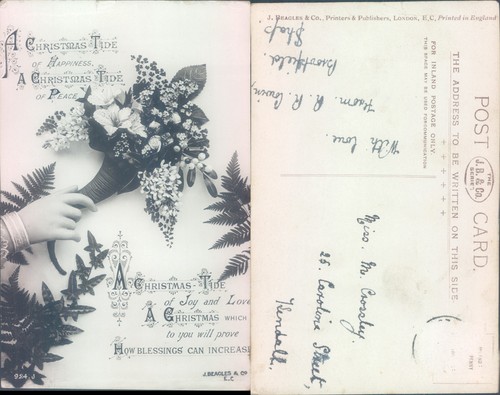 A CHRISTMAS TIDE
OF HAPPINESS,
A CHRISTMAS TIDE
OF PEACE,
A CHRISTMAS-TIDE
of Joy and Love
A CHRISTMAS WHICH
to you will prove
HOW BLESSINGS CAN INCREASE
93A J
J. BEAGLES & CO
E.C.
J. BEAGLES & CO., Printers & Publishers, London, E.C, Printed in England
POST CARD.
THE J.B. & Co. SERIES
THE ADDRESS TO BE WRITTEN ON THIS SIDE
FOR INLAND POSTAGE ONLY
THIS SPACE MAY BE USED FOR COMMUNICATION
With love.
From R. R.
Shap
Miss. M. Crossley
25. Caroline Street,
Kendall.